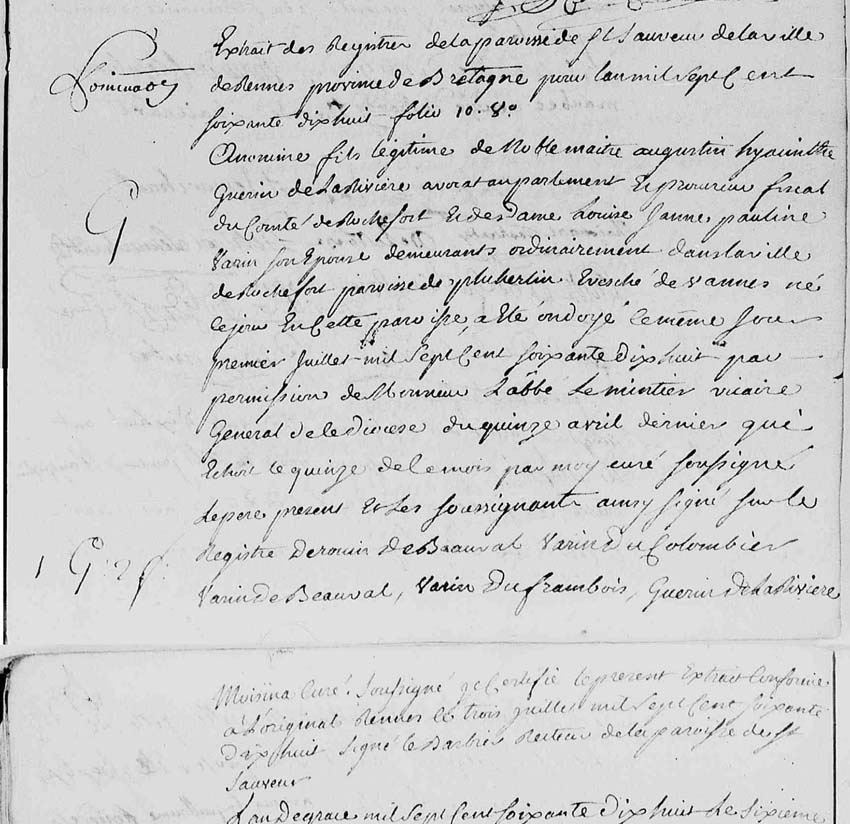 Extrait des Registres de la paroisse de St Sauveur de la ville
de Rennes province de Bretagne pour lan mil Sept Cent
soixante dixhuit folio 10. Vo
Anonime fils legitime de Noble maitre augustin hyacinthe
G
Guerin de la Riviere avocat au parlement Et procureur fiscal
du Comté de Rochefort Et de Dame Louise Janne pauline
Varin son Epouse demeurants ordinairement dans la ville
de Rochefort paroisse de pluherlin Evesché de vannes né
ce jour En Cette paroisse, a Eté ondoyé le même Jour
premier Juillet mil Sept Cent soixante dixhuit par
permission de Monsieur L'abbé Le mintier vicaire
General de ce diocese du quinze avril dernier qui
Echoit le quinze de ce mois par moy curé soussigné
Le pere present Et Les soussignants ainsy signé sur le
1 G
Registre Derouin de Beauval Varin Du Colombier
Varin de Beauval, Varin Du frambois, Guerin de la Riviere
Curé. Soussigné je Certifie le present Extrait Conforme
à L'original Rennes le trois Juillet mil Sept Cent soixante
Dixhuit Signé le Barbier Recteur de la paroisse de St
Sauveur
L'an De grace mil Sept Cent soixante dixhuit le sixieme